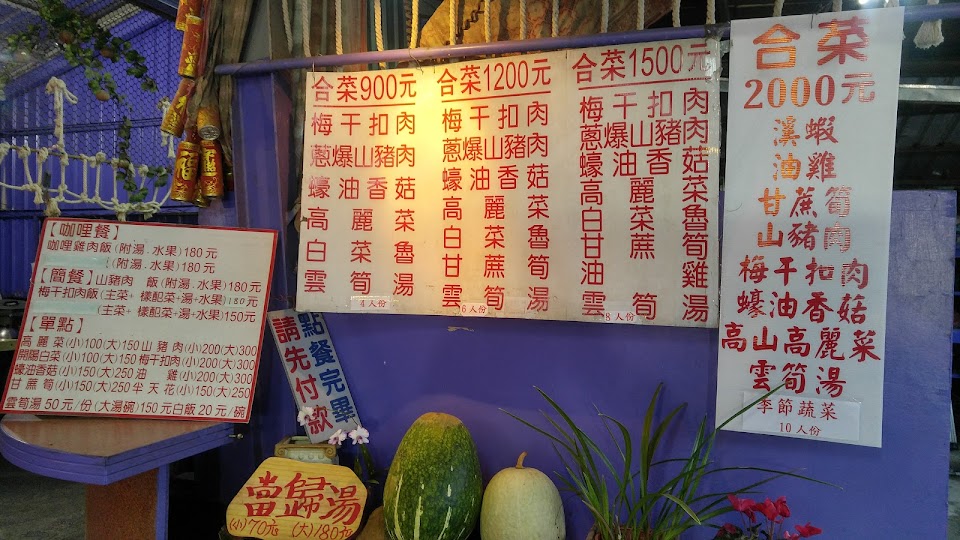 【咖哩餐】
咖哩雞肉飯(附湯.水果)180元
(附湯.水果)180元
【簡餐】山豬肉 飯(附湯.水果)180元
梅干扣肉飯(主菜+樣配菜+湯+水果)180元
(主菜+樣配菜+湯+水果)150元
【單點】
高麗菜(小)100(大)150山豬肉(小)200(大)300
開陽白菜(小)100(大)150梅干扣肉(小)200(大)300
蠔油香菇(小)150(大)250油 雞(小)200(大)300
甘蔗筍(小)150(大)250半天花(小)150(大)250
雲筍湯50元/份(大湯碗)150元白飯20元/碗
請先付款
點餐完畢
當歸湯
(小)70元 (大)180元
合菜900元
梅干扣肉
蔥爆山豬肉
蠔油香菇
高麗菜
白菜魯
雲筍湯
4人份
合菜1200元
梅干扣肉
蔥爆山豬肉
蠔油香菇
高麗菜
白菜魯
甘蔗筍
雲筍湯
6人份
合菜1500元
梅干扣肉
蔥爆山豬肉
蠔油香菇
高麗菜
白菜魯
甘蔗筍
油雞
雲筍湯
8人份
合菜
2000元
溪蝦
油雞
甘蔗筍
山豬肉
梅干扣肉
蠔油香菇
高山高麗菜
雲筍湯
季節蔬菜
10人份